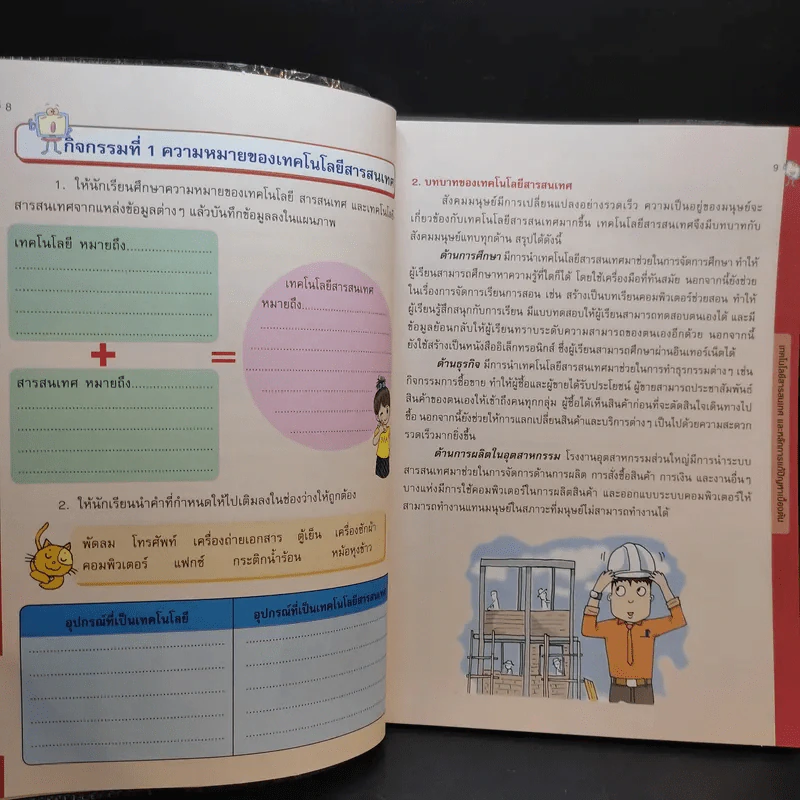 8
กิจกรรมที่ 1 ความหมายของเทคโนโลยีสารสนเทศ
1. ให้นักเรียนศึกษาความหมายของเทคโนโลยี สารสนเทศ และเทคโนโลยี
สารสนเทศจากแหล่งข้อมูลต่างๆ แล้วบันทึกข้อมูลลงในแผนภาพ
เทคโนโลยี หมายถึง
เทคโนโลยีสารสนเทศ
หมายถึง
+
=
สารสนเทศ หมายถึง
2. ให้นักเรียนนำคำที่กำหนดให้ไปเติมลงในช่องว่างให้ถูกต้อง
พัดลม โทรศัพท์ เครื่องถ่ายเอกสาร ตู้เย็น เครื่องซักผ้า
คอมพิวเตอร์ แฟกซ์ กระติกน้ำร้อน หม้อหุงข้าว
อุปกรณ์ที่เป็นเทคโนโลยี
อุปกรณ์ที่เป็นเทคโนโลยีสารสนเทศ
9
2. บทบาทของเทคโนโลยีสารสนเทศ
สังคมมนุษย์มีการเปลี่ยนแปลงอย่างรวดเร็ว ความเป็นอยู่ของมนุษย์จะ
เกี่ยวข้องกับเทคโนโลยีสารสนเทศมากขึ้น เทคโนโลยีสารสนเทศจึงมีบทบาทกับ
สังคมมนุษย์แทบทุกด้าน สรุปได้ดังนี้
ด้านการศึกษา มีการนำเทคโนโลยีสารสนเทศมาช่วยในการจัดการศึกษา ทำให้
ผู้เรียนสามารถศึกษาหาความรู้ที่ใดก็ได้ โดยใช้เครื่องมือที่ทันสมัย นอกจากนี้ยังช่วย
ในเรื่องการจัดการเรียนการสอน เช่น สร้างเป็นบทเรียนคอมพิวเตอร์ช่วยสอน ทำให้
ผู้เรียนรู้สึกสนุกกับการเรียน มีแบบทดสอบให้ผู้เรียนสามารถทดสอบตนเองได้ และมี
ข้อมูลย้อนกลับให้ผู้เรียนทราบระดับความสามารถของตนเองอีกด้วย นอกจากนี้
ยังใช้สร้างเป็นหนังสืออิเล็กทรอนิกส์ ซึ่งผู้เรียนสามารถศึกษาผ่านอินเทอร์เน็ตได้
ด้านธุรกิจ มีการนำเทคโนโลยีสารสนเทศมาช่วยในการทำธุรกรรมต่างๆ เช่น
กิจกรรมการซื้อขาย ทำให้ผู้ซื้อและผู้ขายได้รับประโยชน์ ผู้ขายสามารถประชาสัมพันธ์
สินค้าของตนเองให้เข้าถึงคนทุกกลุ่ม ผู้ซื้อได้เห็นสินค้าก่อนที่จะตัดสินใจเดินทางไป
ซื้อ นอกจากนี้ยังช่วยให้การแลกเปลี่ยนสินค้าและบริการต่างๆ เป็นไปด้วยความสะดวก
รวดเร็วมากยิ่งขึ้น
ด้านการผลิตในอุตสาหกรรม โรงงานอุตสาหกรรมส่วนใหญ่มีการนำระบบ
สารสนเทศมาช่วยในการจัดการด้านการผลิต การสั่งซื้อสินค้า การเงิน และงานอื่นๆ
บางแห่งมีการใช้คอมพิวเตอร์ในการผลิตสินค้า และออกแบบระบบคอมพิวเตอร์ให้
สามารถทำงานแทนมนุษย์ในสภาวะที่มนุษย์ไม่สามารถทำงานได้
เทคโนโลยีสารสนเทศ และหลักการแก้ปัญหาเบื้องต้น